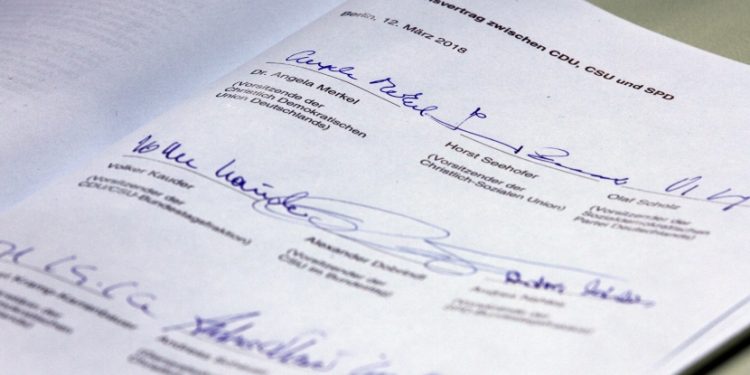 svertrag zwischen CDU, CSU und SPD
Berlin, 12. März 2018
Angela Merkel
Dr. Angela Merkel
(Vorsitzende der
Christlich Demokratischen
Union Deutschlands)
Horst Seehofer
(Vorsitzender der
Christlich-Sozialen Union)
Olaf Scholz
(Vorsitzender der
Sozialdemokratischen
Partei Deutschlands)
Volker Kauder
Volker Kauder
(Vorsitzender der
CDU/CSU-Bundestagsfraktion)
Alexander Dobrindt
(Vorsitzender der
CSU im Bundestag)
Andrea Nahles
(Vorsitzende der
SPD-Bundestagsfraktion)
Kramp-Karrenbauer